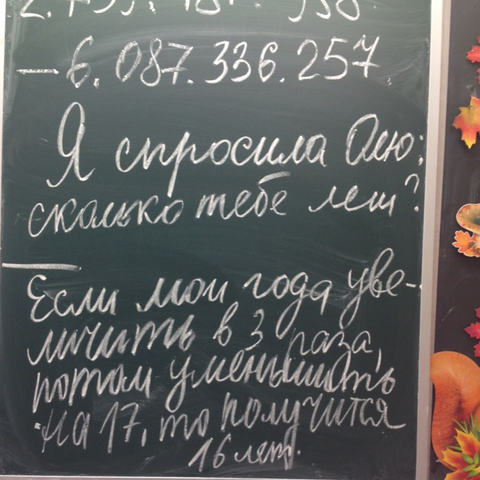 — 6.087.336.257
Я спросила Олю:
сколько тебе лет?
— Если мои года уве-
личить в 3 раза,
потом уменьшить
на 17, то получится
16 лет.